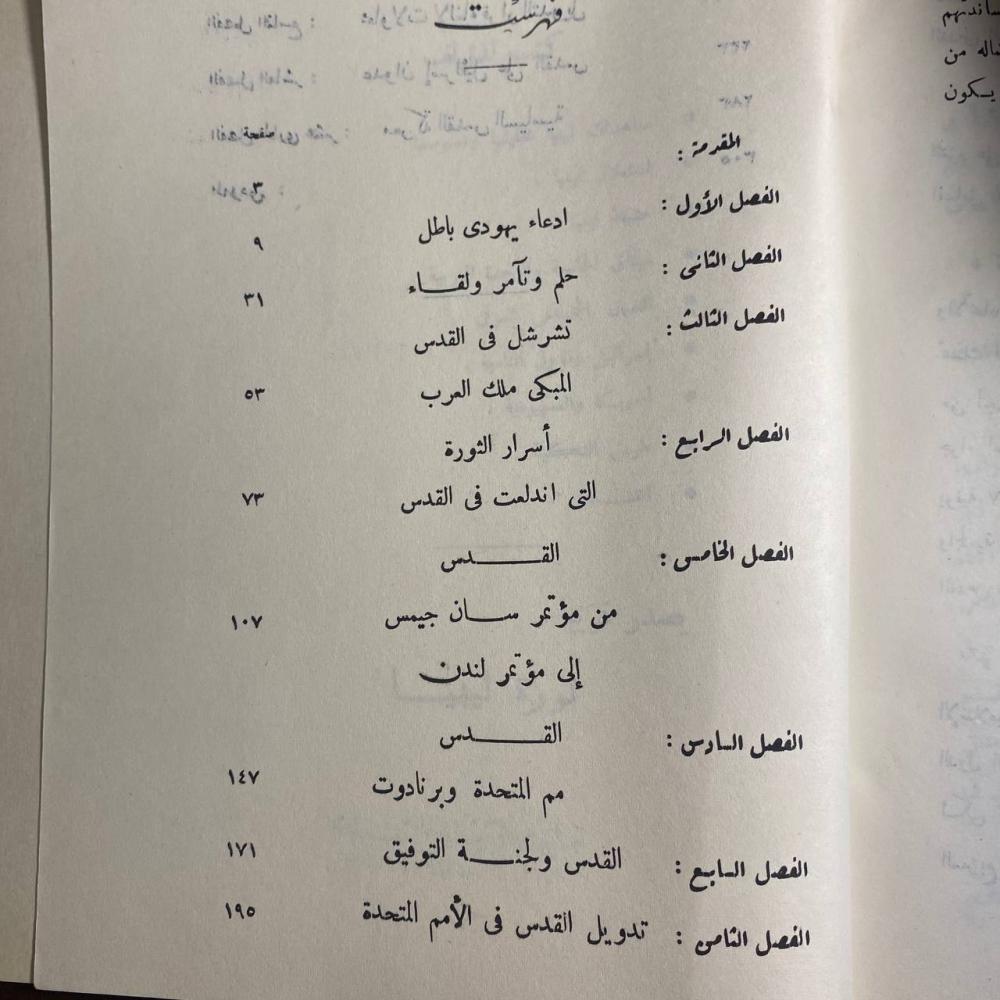 فهرست
صفحة
المقدمة : ٣
الفصل الأول : ادعاء يهودى باطل ٩
الفصل الثانى : حلم وتآمر ولقاء ٣١
الفصل الثالث : تشرشل فى القدس
المبكى ملك العرب ٥٣
الفصل الرابع : أسرار الثورة
التى اندلعت فى القدس ٧٣
الفصل الخامس : القدس
من مؤتمر سان جيمس ١٠٧
إلى مؤتمر لندن
الفصل السادس : القدس
مم المتحدة وبرنادوت ١٤٧
الفصل السابع : القدس ولجنة التوفيق ١٧١
الفصل الثامن : تدويل القدس فى الأمم المتحدة ١٩٥
ساندهم
ضاله من
يكون